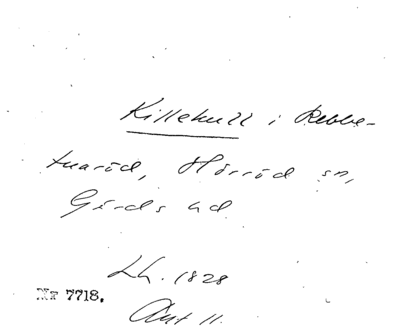 Killehull i Rebbe-
tuaröd, Hörröd sn,
Gärds hd
Lh. 1828
Nr 7718.
Akt 11.